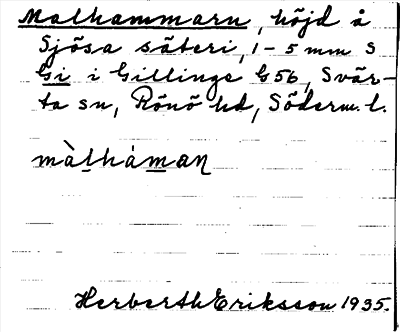 Malhammarn, höjd å
Sjösa säteri, 1-5 mm S
Gi i Gillinge G56, Svär-
ta sn, Rönö hd, Söderm. l.
màlháman
Herberth Eriksson 1935.